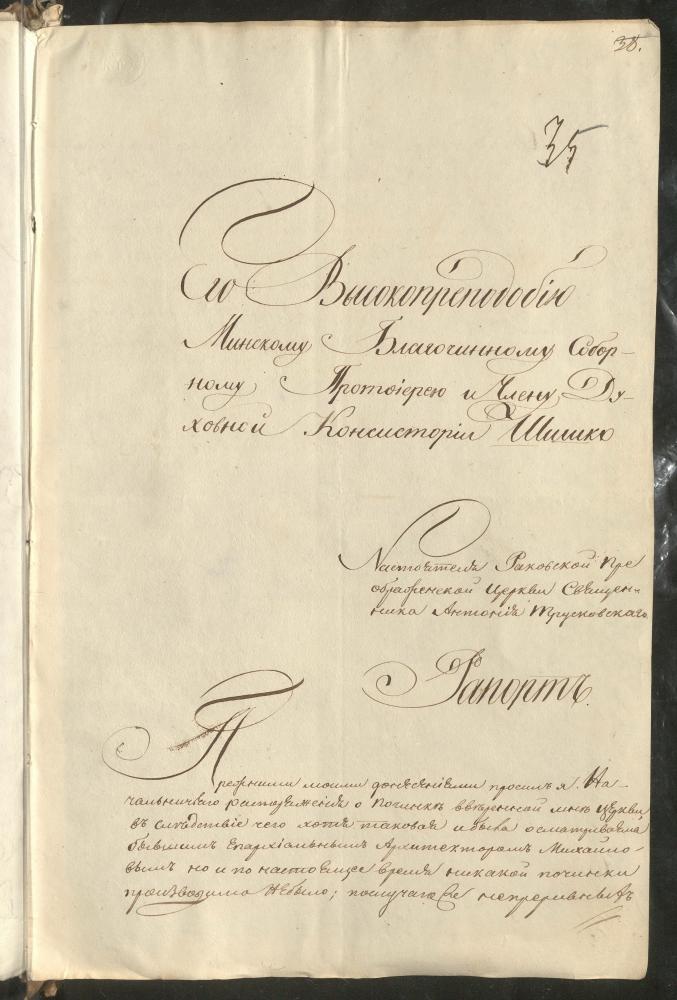 38.
35
Его Высокопреподобію
Минскому Благочинному Собор-
ному Протоіерею и Члену Ду-
ховной Консисторіи Шишко
Настоятеля Раковской Пре
ображенской Церкви Священ-
ника Антонія Трусковскаго
Рапортъ
Прежними моими донесеніями просилъ я На-
чальничьяго распоряженія о починкѣ ввѣренной мнѣ Церкви,
въ слѣдствіе чего хотя таковая и была осматриваема
бывшимъ Епархіальнымъ Архитекторомъ Михайло-
вымъ но и по настоящее время никакой починки
произведимо небыло; послучаю же непрерывныхъ